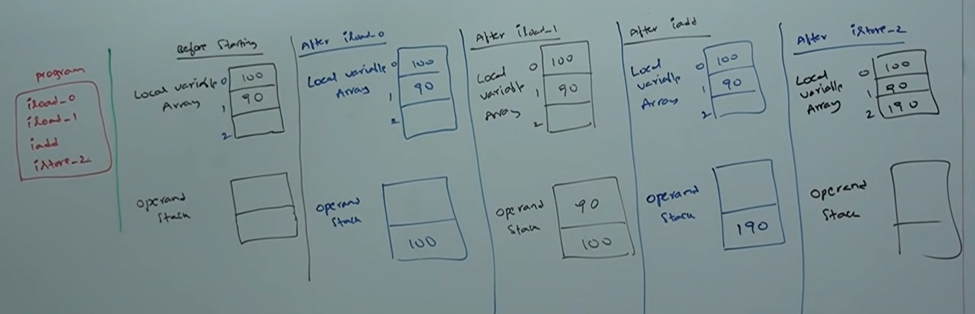 program
iload_0
iload_1
iadd
istore_2
Before Starting
Local variable
Array
0 100
1 90
2
operand
Stack
After iload_0
Local variable
Array
0 100
1 90
2
operand
Stack
100
After iload_1
Local
variable
Array
0 100
1 90
2
operand
Stack
90
100
After iadd
Local
variable
Array
0 100
1 90
2
operand
Stack
190
After istore_2
Local
variable
Array
0 100
1 90
2 190
operand
Stack